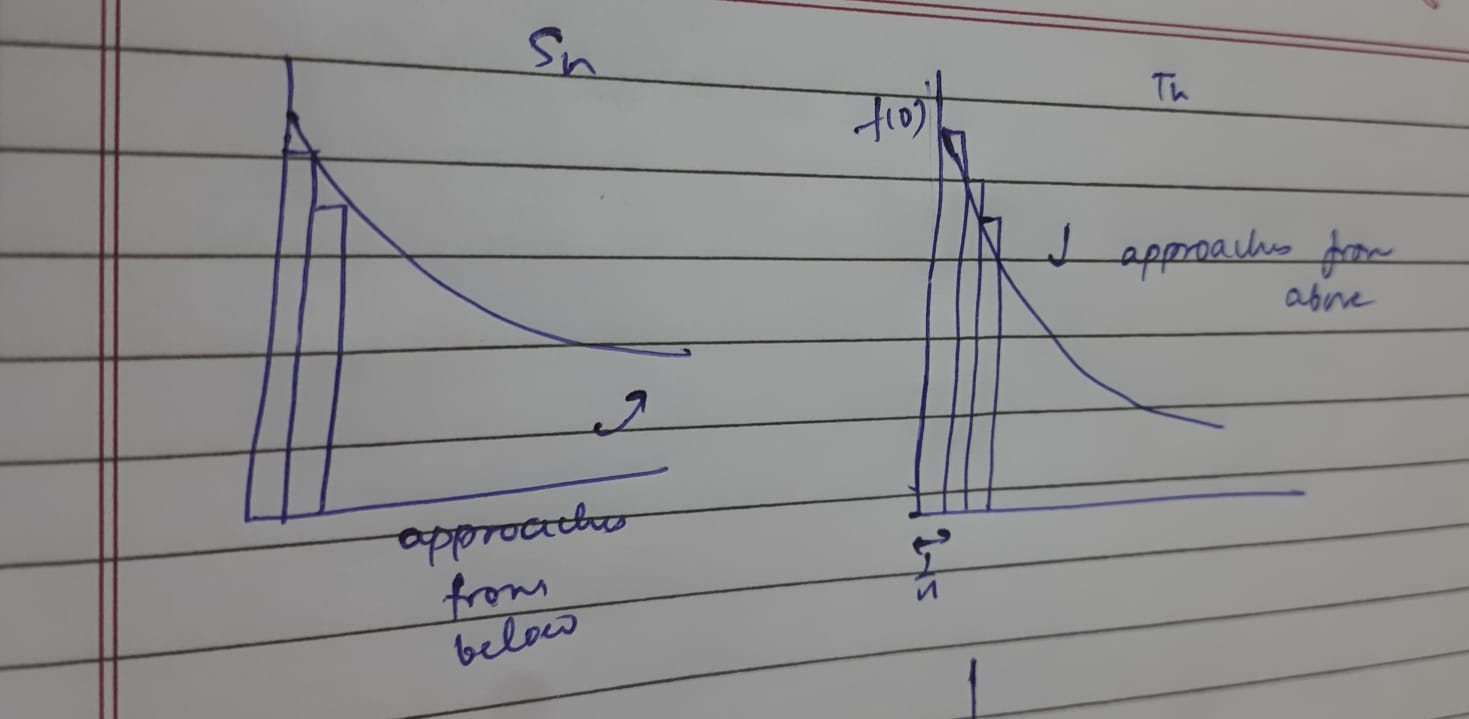 Sn
Tn
f(0)
approaches from
above
1/n
approaches
from
below